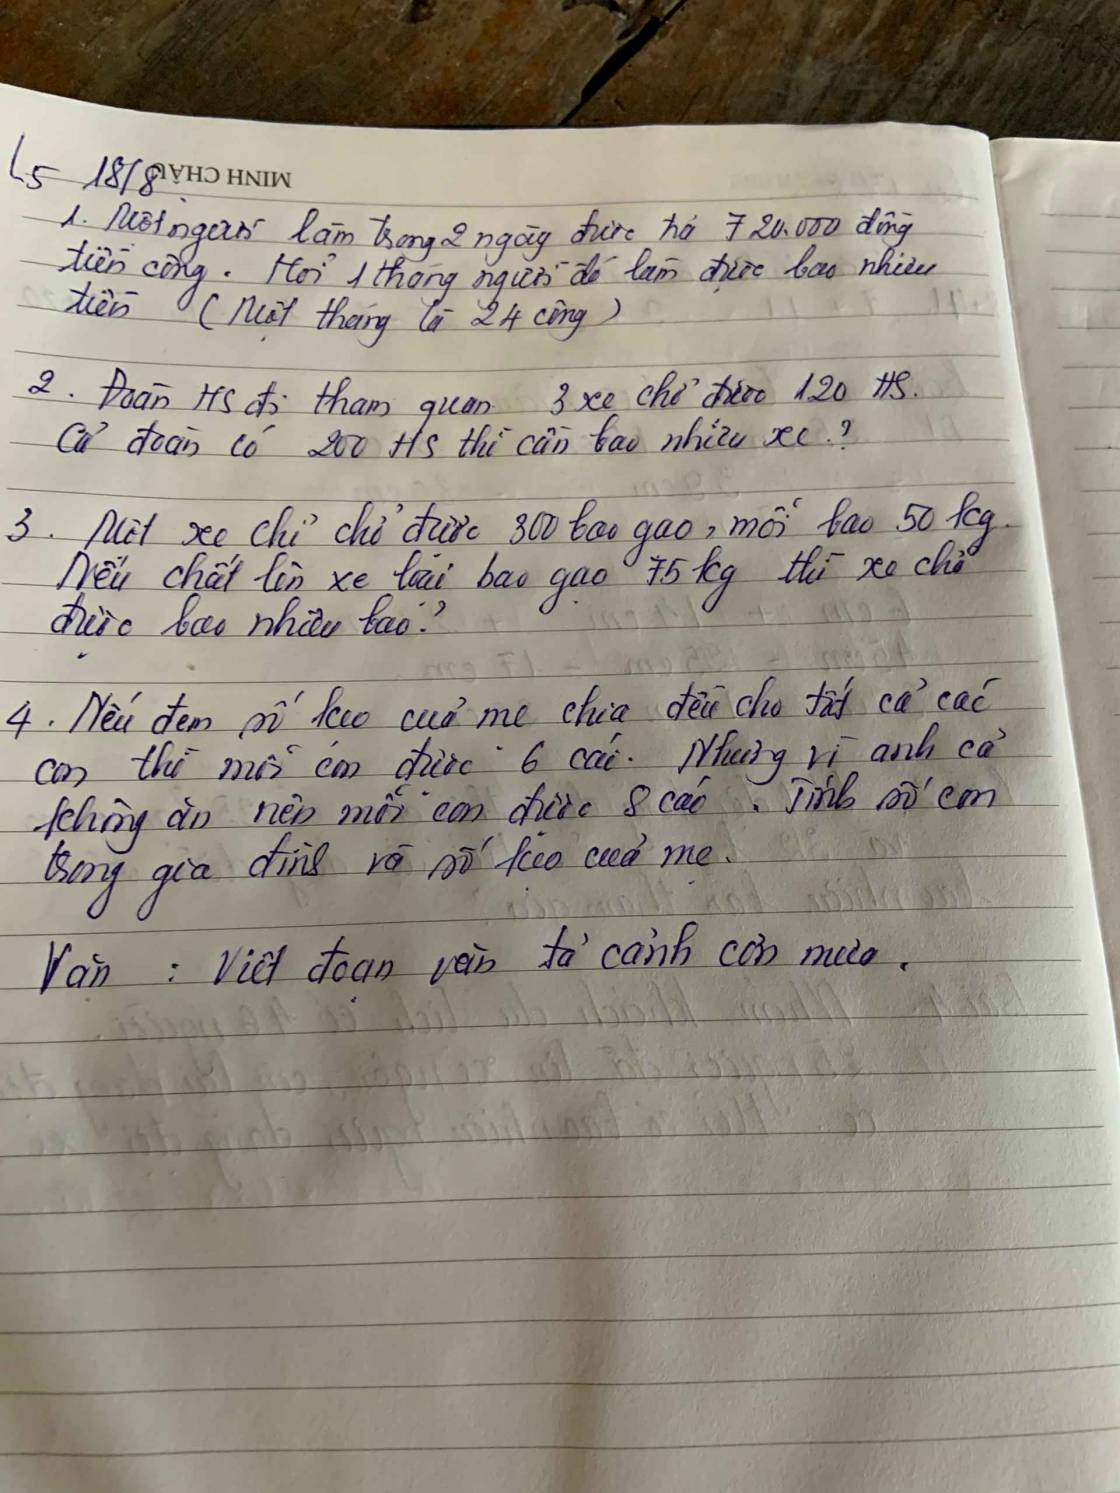 L5 18/8 MINH CHÂU
1. Một người làm trong 2 ngày được trả 720.000 đồng
tiền công. Hỏi 1 tháng người đó làm được bao nhiêu
tiền (Một tháng là 24 công)
2. Đoàn HS đi tham quan 3 xe chở được 120 HS.
Cả đoàn có 200 HS thì cần bao nhiêu xe.?
3. Một xe chỉ chở được 300 bao gạo, mỗi bao 50 kg.
Nếu chất lên xe loại bao gạo 75 kg thì xe chở
được bao nhiêu bao?
4. Nếu đem số kẹo của mẹ chia đều cho tất cả các
con thì mỗi con được 6 cái. Nhưng vì anh cả
không ăn nên mỗi con được 8 cái. Tính số con
trong gia đình và số kẹo của mẹ.
Văn : Viết đoạn văn tả cảnh cơn mưa.